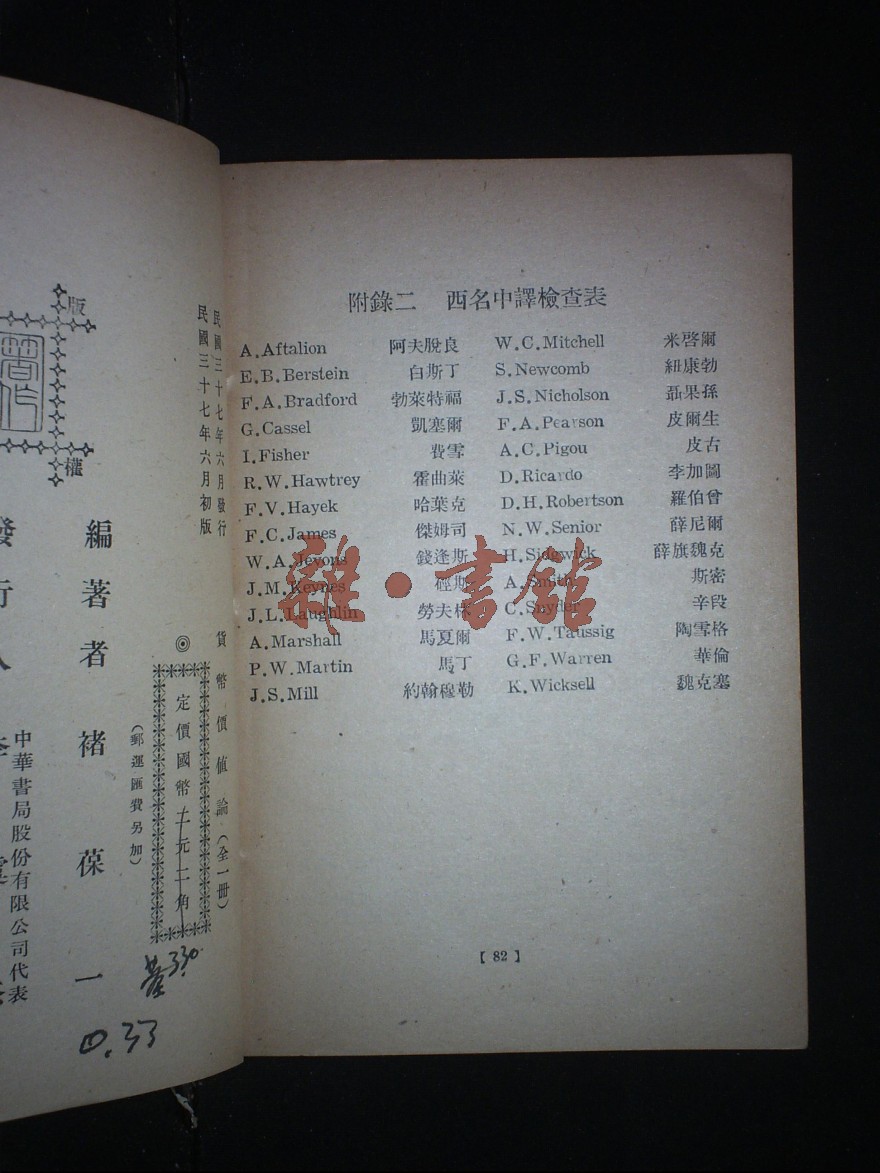 附錄二 西名中譯檢查表
A.Aftalion 阿夫脫良
E.B.Berstein 白斯丁
F.A.Bradford 勃萊特福
G.Cassel 凱塞爾
I.Fisher 費雪
R.W.Hawtrey 霍曲萊
F.V.Hayek 哈葉克
F.C.James 傑姆司
W.A.Jevons 錢逢斯
J.M.Keynes 經斯
J.L.Laughlin 勞夫林
A.Marshall 馬夏爾
P.W.Martin 馬丁
J.S.Mill 約翰穆勒
W.C.Mitchell 米啓爾
S.Newcomb 紐康勃
J.S.Nicholson 聶果孫
F.A.Pearson 皮爾生
A.C.Pigou 皮古
D.Ricardo 李加圖
D.H.Robertson 羅伯曾
N.W.Senior 薛尼爾
H.Sidgwick 薛旗魏克
A.Smith 斯密
C.Snyder 辛段
F.W.Taussig 陶雪格
G.F.Warren 華倫
K.Wicksell 魏克塞
【82】
雜·書館
民國三十七年六月發行
民國三十七年六月初版
貨幣價值論(全一冊)
◎
定價國幣二元二角
(郵運匯費另加)
編著者 褚葆一
發行人 李
中華書局股份有限公司代表
版
權
著作
330
0.33